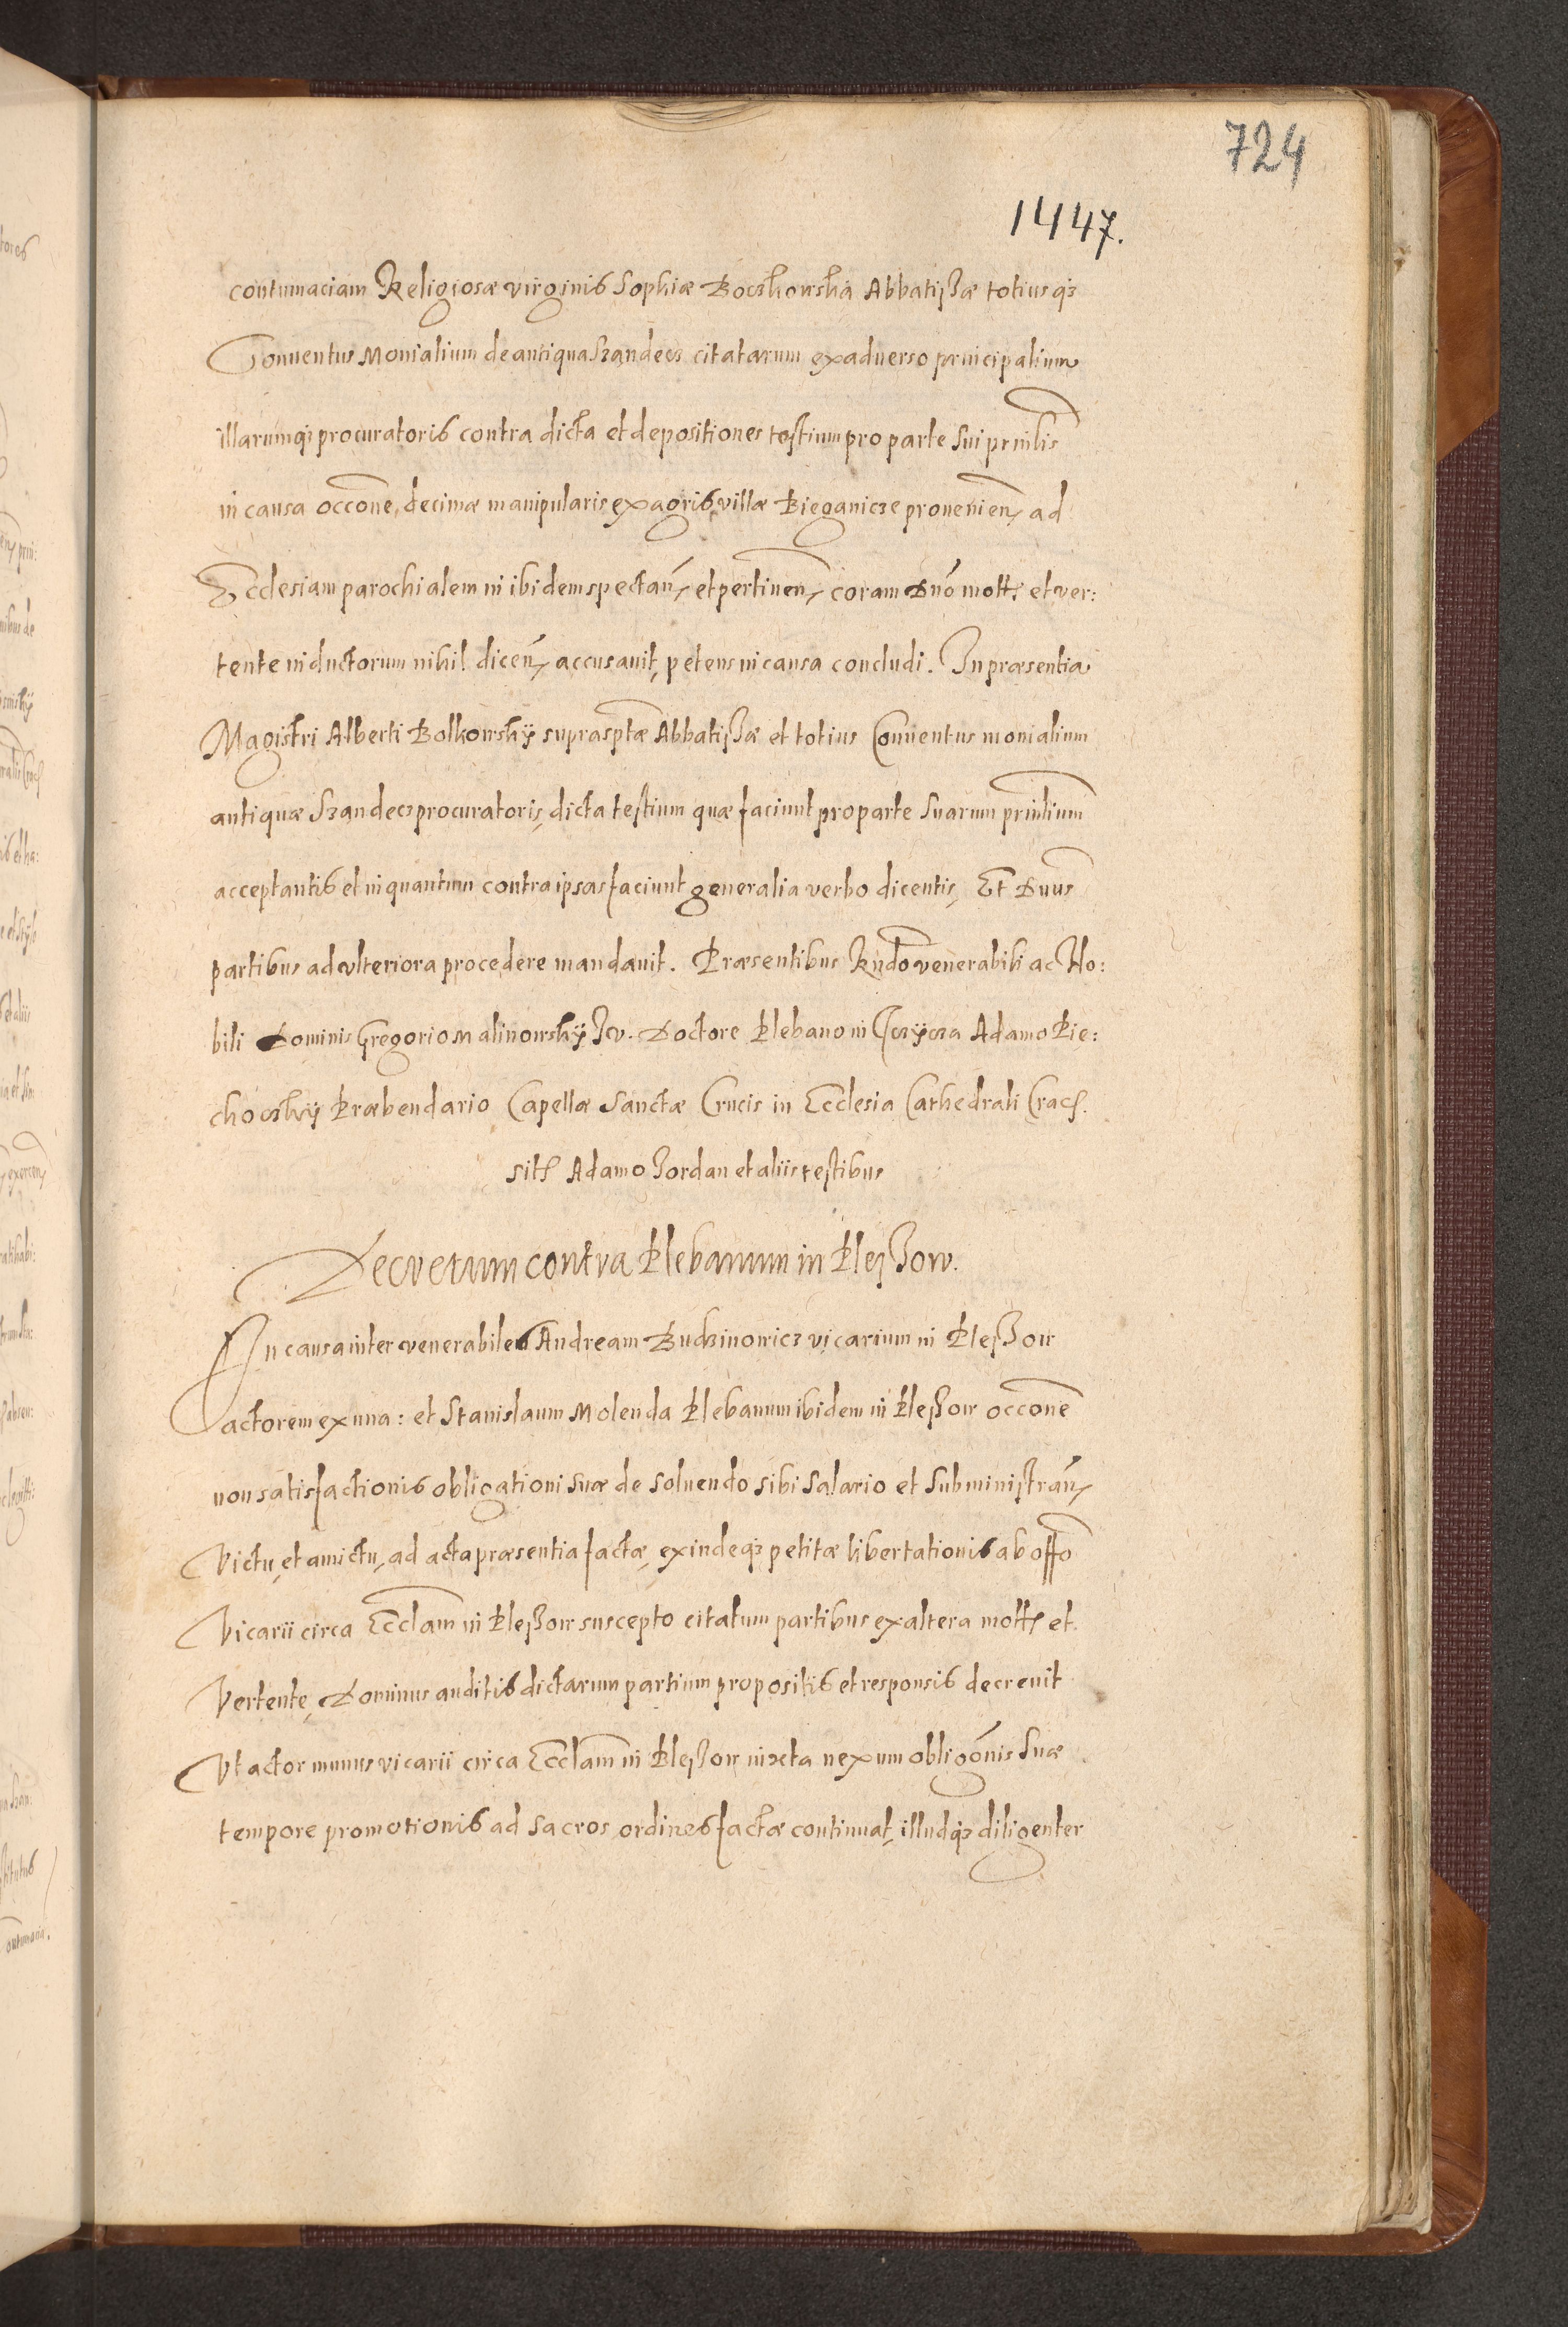 724
1447.
contumaciam Religiosæ virginis Sophiæ Boczkowska Abbatissæ totiusq3
Conuentus Monialium de antiqua Szandecz citatarum ex aduerso principalium
illarumq3 procuratoris contra dicta et depositiones testium pro parte sui prinlis
in causa occone, decimæ manipularis ex agris villæ Bieganicze prouenien, ad
Ecclesiam parochialem in ibidem spectan, et pertinen, coram Dno mott et ver:
tente inductorum nihil dicen, accusauit, petens in causa concludi. In præsentia
Magistri Alberti Bolkowskij suprasptæ Abbatissæ et totius Conuentus monialium
antiquæ Szandecz procuratoris, dicta testium quæ faciunt pro parte suarum prinlium
acceptantis et in quantum contra ipsas faciunt generalia verbo dicentis, Et Dnus
partibus ad vlteriora procedere mandauit. Præsentibus Rndo venerabili ac No:
bili Dominis Gregorio Malinowskij Jv. Doctore Plebano in Adamo Pie:
chockij Præbendario Capellæ Sanctæ Crucis in Ecclesia Cathedrali Crac.
Adamo Jordan et aliis testibus
Decretum contra Plebanum in Plessow.
In causa inter venerabiles Andream Budzinowicz vicarium in Plessow
actorem ex una: et Stanislaum Molenda Plebanum ibidem in Plessow occone
non satisfactionis obligationi suæ de soluendo sibi salario et subministran,
Victu, et amictu, ad acta præsentia factæ, exindeq3 petitæ libertationis ab offo
Vicarii circa Ecclam in Plessow suscepto citatum partibus ex altera mott et
Vertente, Dominus auditis dictarum partium propositis et responsis decreuit
Vt actor munus vicarii circa Ecclam in Plessow iuxta nexum obligonis suæ
tempore promotionis ad sacros ordines factæ continuat, illudq3 diligenter